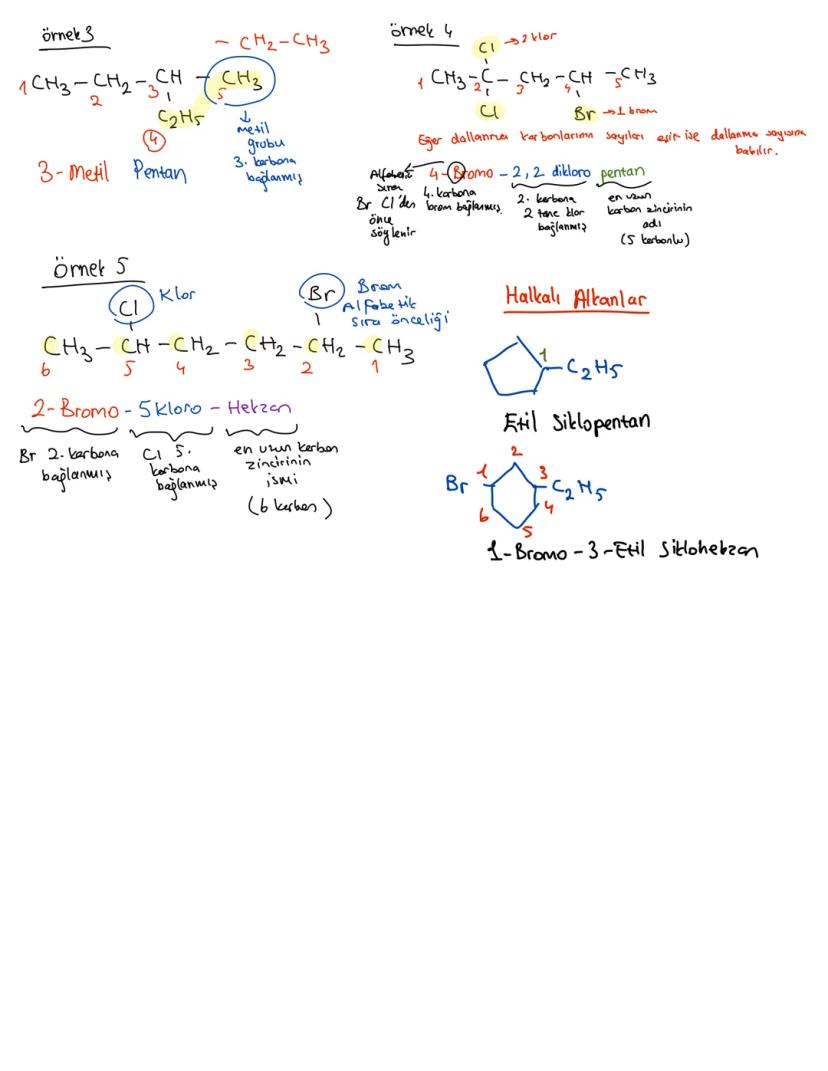 örnek 3
- CH₂-CH₃
1 CH₃ - CH₂ - CH - CH₃
2 3 5
C₂H₅
4
↓
metil
grubu
3. karbona
bağlanmış
3-Metil Pentan
örnek 4
Cl → 2 klor
1 CH₃ - C - CH₂ - CH - CH₃
2 3 4 5
Cl Br → 1 brom
Eğer dallanma karbonlarının sayıları eşit ise dallanma sayısına
bakılır.
4-Bromo - 2,2 dikloro pentan
Alfabetik
sıra
Br Cl'den
önce
söylenir
4. karbona
brom bağlanmış
2. karbona
2 tane klor
bağlanmış
en uzun
karbon zincirinin
adı
(5 karbonlu)
Örnek 5
Cl Klor
Br Brom
Alfabetik
sıra önceliği
CH₃ - CH - CH₂ - CH₂ - CH₂ - CH₃
6 5 4 3 2 1
2-Bromo - 5 Kloro - Hekzan
Br 2. karbona
bağlanmış
Cl 5.
karbona
bağlanmış
en uzun karbon
zincirinin
ismi
(6 karbon)
Halkalı Alkanlar
1
- C₂H₅
Etil Siklopentan
2
Br 1 3 - C₂H₅
6 4
5
1-Bromo-3-Etil Siklohekzan